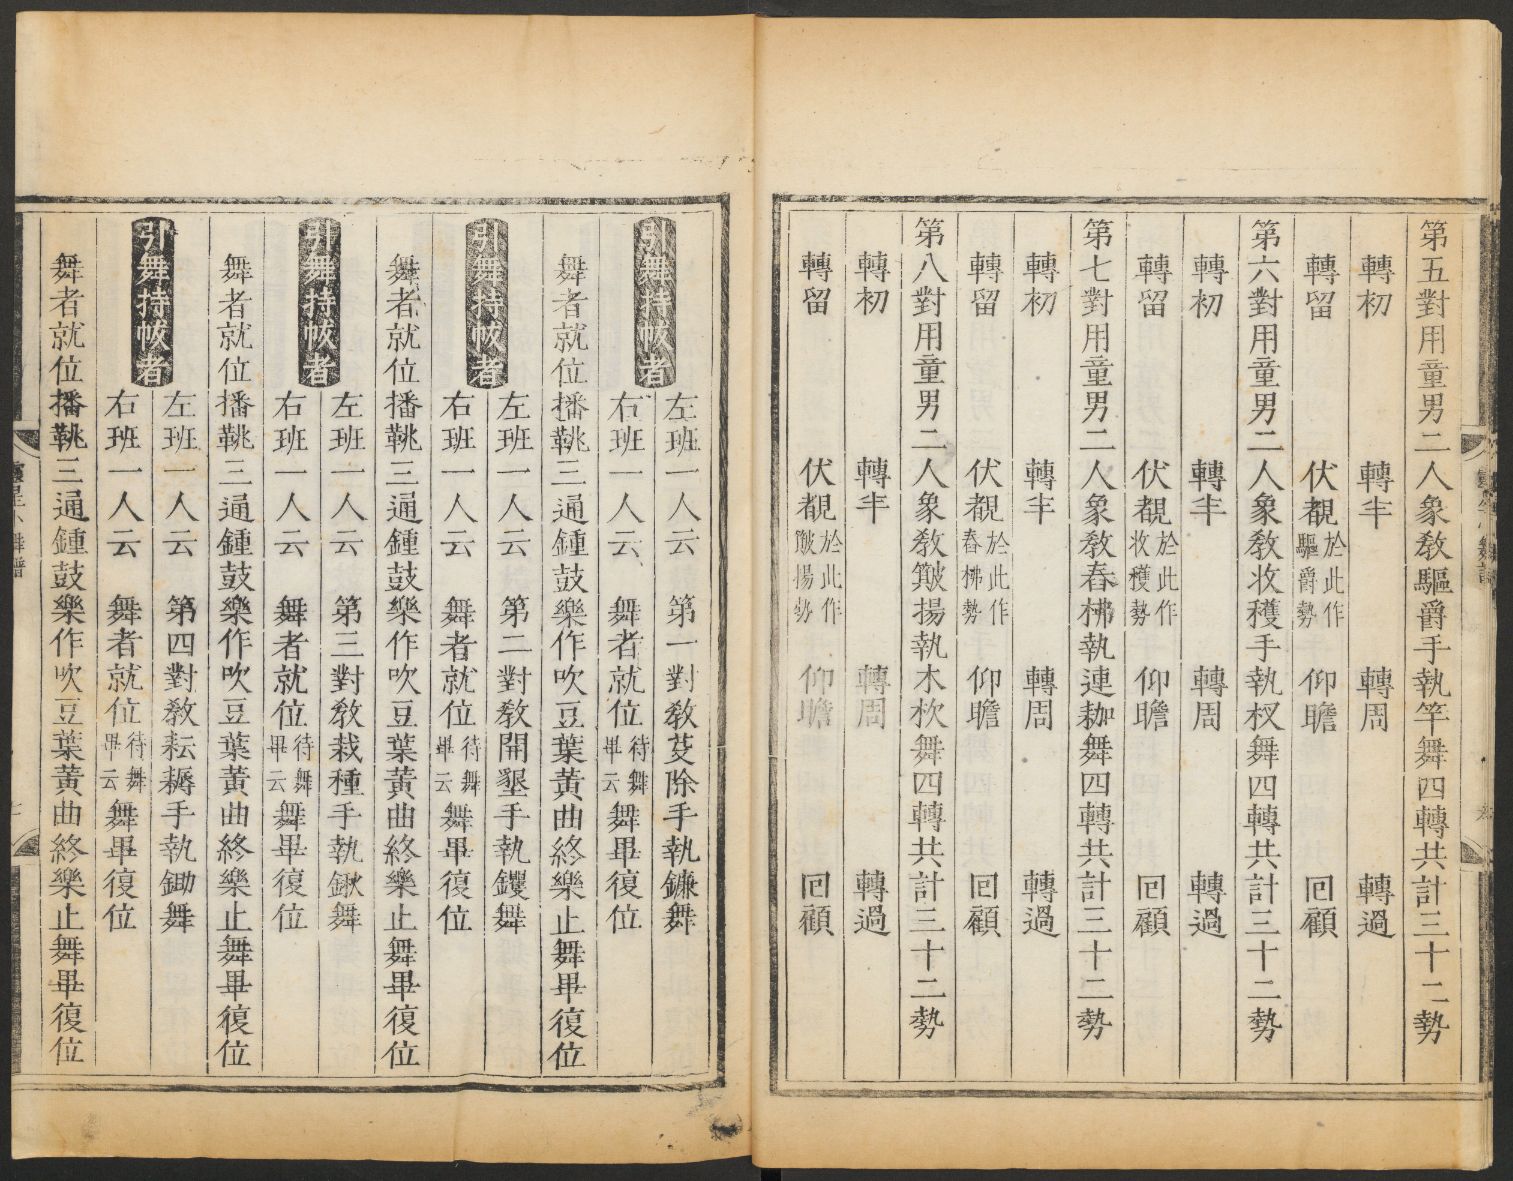 第五對用童男二人象敎驅爵手執竿舞四轉共計三十二勢
轉初 轉半 轉周 轉過
轉留 伏覩於此作驅爵勢 仰瞻 回顧
第六對用童男二人象敎收穫手執杈舞四轉共計三十二勢
轉初 轉半 轉周 轉過
轉留 伏覩於此作收穫勢 仰瞻 回顧
第七對用童男二人象敎舂柫執連耞舞四轉共計三十二勢
轉初 轉半 轉周 轉過
轉留 伏覩於此作舂柫勢 仰瞻 回顧
第八對用童男二人象敎簸揚執木杴舞四轉共計三十二勢
轉初 轉半 轉周 轉過
轉留 伏覩於此作簸揚勢 仰瞻 回顧
引舞持帗者
左班一人云 第一對敎芟除手執鐮舞
右班一人云 舞者就位待舞畢云舞畢復位
舞者就位播鞉三通鍾鼓樂作吹豆葉黃曲終樂止舞畢復位
引舞持帗者
左班一人云 第二對敎開墾手執钁舞
右班一人云 舞者就位待舞畢云舞畢復位
舞者就位播鞉三通鍾鼓樂作吹豆葉黃曲終樂止舞畢復位
引舞持帗者
左班一人云 第三對敎栽種手執鍬舞
右班一人云 舞者就位待舞畢云舞畢復位
舞者就位播鞉三通鍾鼓樂作吹豆葉黃曲終樂止舞畢復位
引舞持帗者
左班一人云 第四對敎耘耨手執鋤舞
右班一人云 舞者就位待舞畢云舞畢復位
舞者就位播鞉三通鍾鼓樂作吹豆葉黃曲終樂止舞畢復位